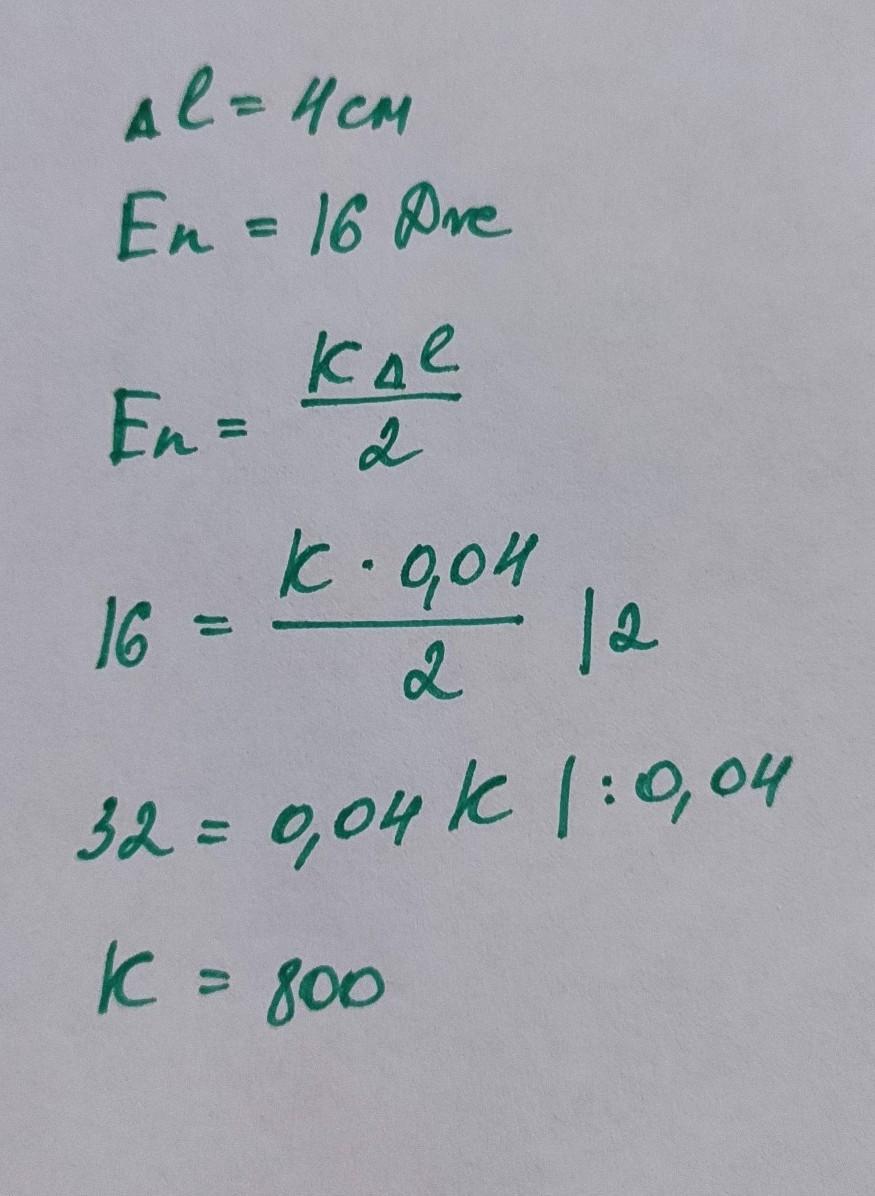 Δl = 4 см
Eп = 16 Дж
Eп = kΔl / 2
16 = k · 0,04 / 2 | 2
32 = 0,04 k | : 0,04
k = 800